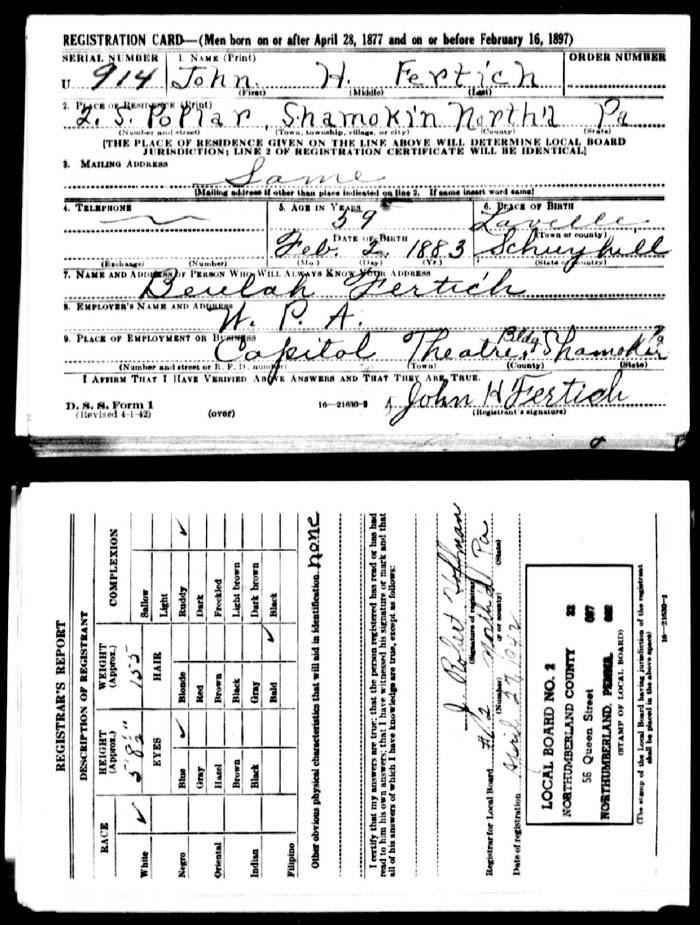 REGISTRATION CARD—(Men born on or after April 28, 1877 and on or before February 16, 1897)
SERIAL NUMBER 1. NAME (Print) ORDER NUMBER
U 914 John H. Fertich
(First) (Middle) (Last)
2. PLACE OF RESIDENCE (Print)
S. Poplar, Shamokin North'd Pa
(Number and street) (Town, township, village, or city) (County) (State)
[THE PLACE OF RESIDENCE GIVEN ON THE LINE ABOVE WILL DETERMINE LOCAL BOARD
JURISDICTION; LINE 2 OF REGISTRATION CERTIFICATE WILL BE IDENTICAL]
3. MAILING ADDRESS
Same
[Mailing address if other than place indicated on line 2. If same insert word same]
4. TELEPHONE 5. AGE IN YEARS 6. PLACE OF BIRTH
59 Lavelle
DATE OF BIRTH (Town or county)
Feb. 2. 1883 Schuylkill
(Exchange) (Number) (Mo.) (Day) (Yr.) (State or country)
7. NAME AND ADDRESS OF PERSON WHO WILL ALWAYS KNOW YOUR ADDRESS
Beulah Fertich
8. EMPLOYER'S NAME AND ADDRESS
W. P. A.
9. PLACE OF EMPLOYMENT OR BUSINESS
Capitol Theatre Bldg. Shamokin Pa
(Number and street or R. F. D. number) (Town) (County) (State)
I AFFIRM THAT I HAVE VERIFIED ABOVE ANSWERS AND THAT THEY ARE TRUE.
D. S. S. Form 1
(Revised 4-1-42) (over) 16—21630-2 John H Fertich
(Registrant's signature)
REGISTRAR'S REPORT
DESCRIPTION OF REGISTRANT
RACE HEIGHT (Approx.) WEIGHT (Approx.) COMPLEXION
5' 8½" 155
White ✓ EYES HAIR Sallow
Light
Negro Blue ✓ Blonde Ruddy ✓
Gray Red Dark
Oriental Hazel Brown Freckled
Brown Black Light brown
Indian Black Gray Dark brown
Bald ✓ Black
Filipino
Other obvious physical characteristics that will aid in identification. none
I certify that my answers are true; that the person registered has read or has had
read to him his own answers; that I have witnessed his signature or mark and that
all of his answers of which I have knowledge are true, except as follows:
J. Robert Hoffman
(Signature of registrar)
Registrar for Local Board #2 North'd Pa
(Number) (City or county) (State)
Date of registration April 27, 1942
LOCAL BOARD NO. 2
NORTHUMBERLAND COUNTY 22
56 Queen Street 097
NORTHUMBERLAND, PENNA. 002
(STAMP OF LOCAL BOARD)
(The stamp of the Local Board having jurisdiction of the registrant
shall be placed in the above space)
16—21630-1